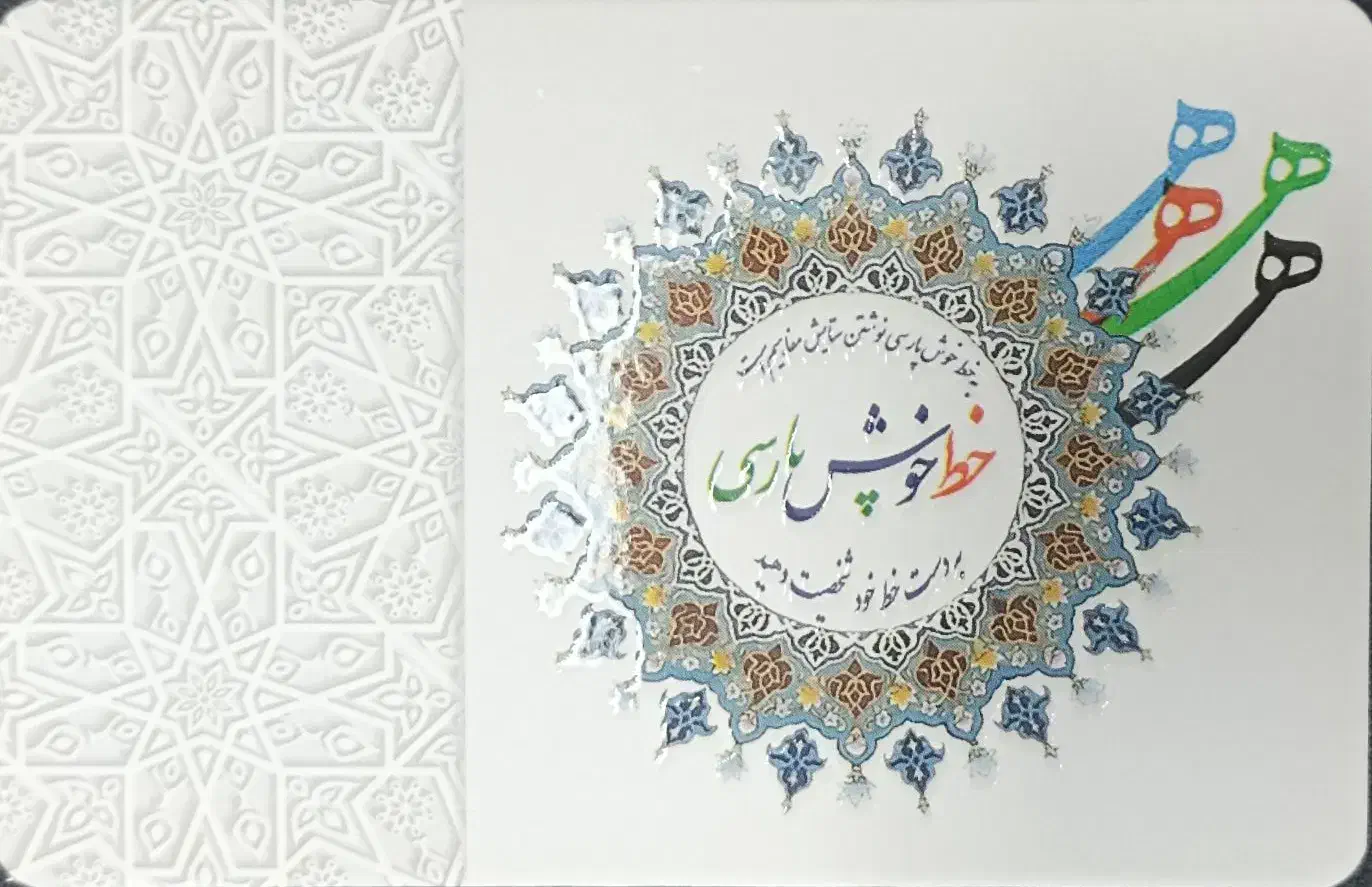 به خط خوش پارسی نوشتن ستایش مفاهیم است
خط خوش پارسی
به دست خط خود شخصیت دهید